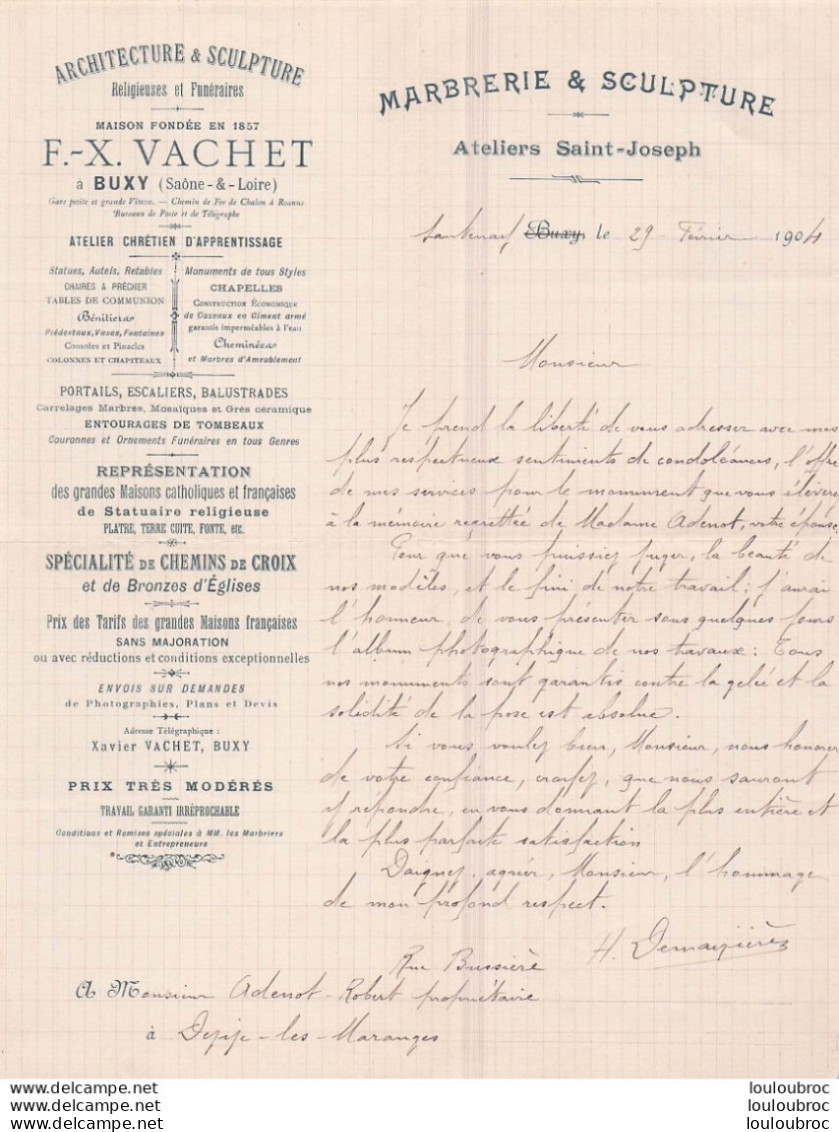 ARCHITECTURE & SCULPTURE
Religieuses et Funéraires
MAISON FONDÉE EN 1857
F.-X. VACHET
à BUXY (Saône-&-Loire)
Gare petite et grande Vitesse. — Chemin de Fer de Chalon à Roanne
Bureaux de Poste et de Télégraphe
ATELIER CHRÉTIEN D'APPRENTISSAGE
Statues, Autels, Retables
CHAIRES A PRÊCHER
TABLES DE COMMUNION
Bénitiers
Piédestaux, Vases, Fontaines
Consoles et Pinacles
COLONNES ET CHAPITEAUX
Monuments de tous Styles
CHAPELLES
CONSTRUCTION ÉCONOMIQUE
de Caveaux en Ciment armé
garantis imperméables à l'eau
Cheminées
et Marbres d'Ameublement
PORTAILS, ESCALIERS, BALUSTRADES
Carrelages Marbres, Mosaïques et Grès céramique
ENTOURAGES DE TOMBEAUX
Couronnes et Ornements Funéraires en tous Genres
REPRÉSENTATION
des grandes Maisons catholiques et françaises
de Statuaire religieuse
PLATRE, TERRE CUITE, FONTE, etc.
SPÉCIALITÉ DE CHEMINS DE CROIX
et de Bronzes d'Églises
Prix des Tarifs des grandes Maisons françaises
SANS MAJORATION
ou avec réductions et conditions exceptionnelles
ENVOIS SUR DEMANDES
de Photographies, Plans et Devis
Adresse Télégraphique :
Xavier VACHET, BUXY
PRIX TRÈS MODÉRÉS
TRAVAIL GARANTI IRRÉPROCHABLE
Conditions et Remises spéciales à MM. les Marbriers
et Entrepreneurs
MARBRERIE & SCULPTURE
Ateliers Saint-Joseph
Santenay Buxy, le 29 Février 1904
Monsieur
Je prend la liberté de vous adresser avec mes
plus respectueux sentiments de condoléances, l'offre
de mes services pour le monument que vous élèverez
à la mémoire regrettée de Madame Adenot, votre épouse.
Pour que vous puissiez juger, la beauté de
nos modèles, et le fini de notre travail ; j'aurai
l'honneur, de vous présenter sous quelques jours
l'album photographique de nos travaux : Tous
nos monuments sont garantis contre la gelée et la
solidité de la pose est absolue.
Si vous voulez bien, Monsieur, nous honorer
de votre confiance, croyez, que nous sauront
y répondre, en vous donnant la plus entière et
la plus parfaite satisfaction
Daignez agréer, Monsieur, l'hommage
de mon profond respect.
H. Demaizières
Rue Bussière
A Monsieur Adenot-Robert propriétaire
à Dezize-les-Maranges
louloubroc
louloubroc
louloubroc
louloubroc
louloubroc
louloubroc